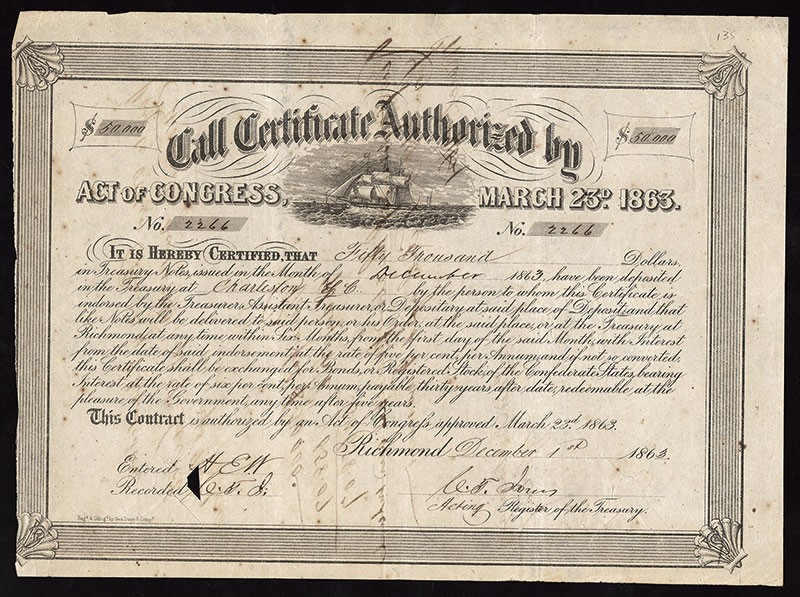 135
$ 50.000
$ 50.000
Call Certificate Authorized by
ACT OF CONGRESS, MARCH 23D 1863.
No. 2266
No. 2266
IT IS HEREBY CERTIFIED, THAT Fifty Thousand Dollars,
in Treasury Notes, issued in the Month of December 1863, have been deposited
in the Treasury at Charleston S.C. by the person to whom this Certificate is
endorsed by the Treasurer, Assistant Treasurer, or Depositary at said place of Deposit, and that
like Notes, will be delivered to said person, or his Order, at the said place, or at the Treasury at
Richmond, at any time within Six Months, from the first day of the said Month, with Interest
from the date of said indorsement, at the rate of five per cent, per Annum, and if not so converted,
this Certificate shall be exchanged for Bonds, or Registered Stock, of the Confederate States, bearing
Interest at the rate of six per Cent, per Annum, payable thirty years after date, redeemable, at the
pleasure of the Government, any time after five years.
This Contract is authorized by an Act of Congress approved March 23d 1863.
Richmond December 1st 1863.
Entered
Recorded C. T. J.
C. T. Jones
Acting Register of the Treasury.